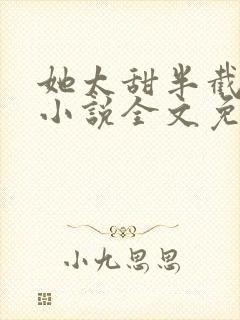 她太甜半截
小说全文免
小九思思